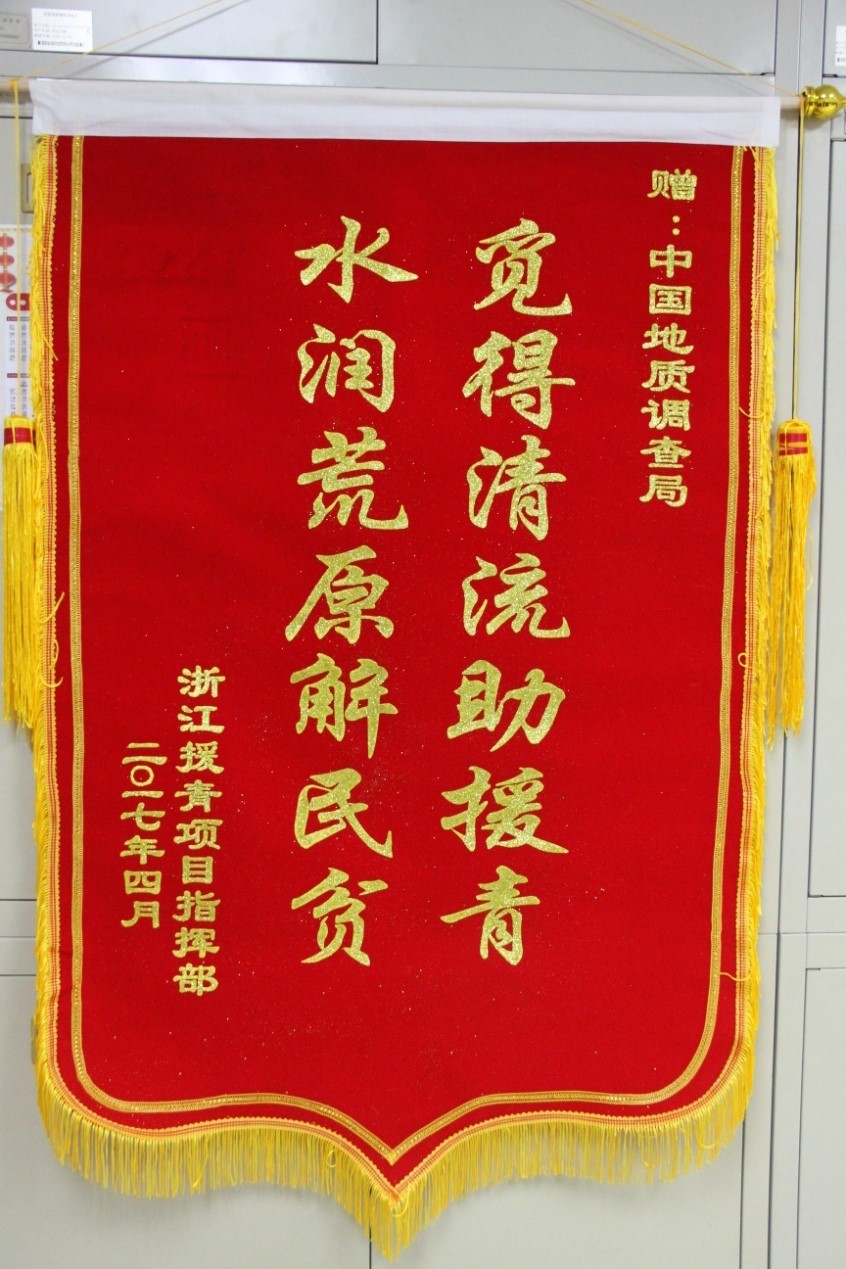 赠：中国地质调查局
觅得清流助援青
水润荒原解民贫
浙江援青项目指挥部
二〇一七年四月